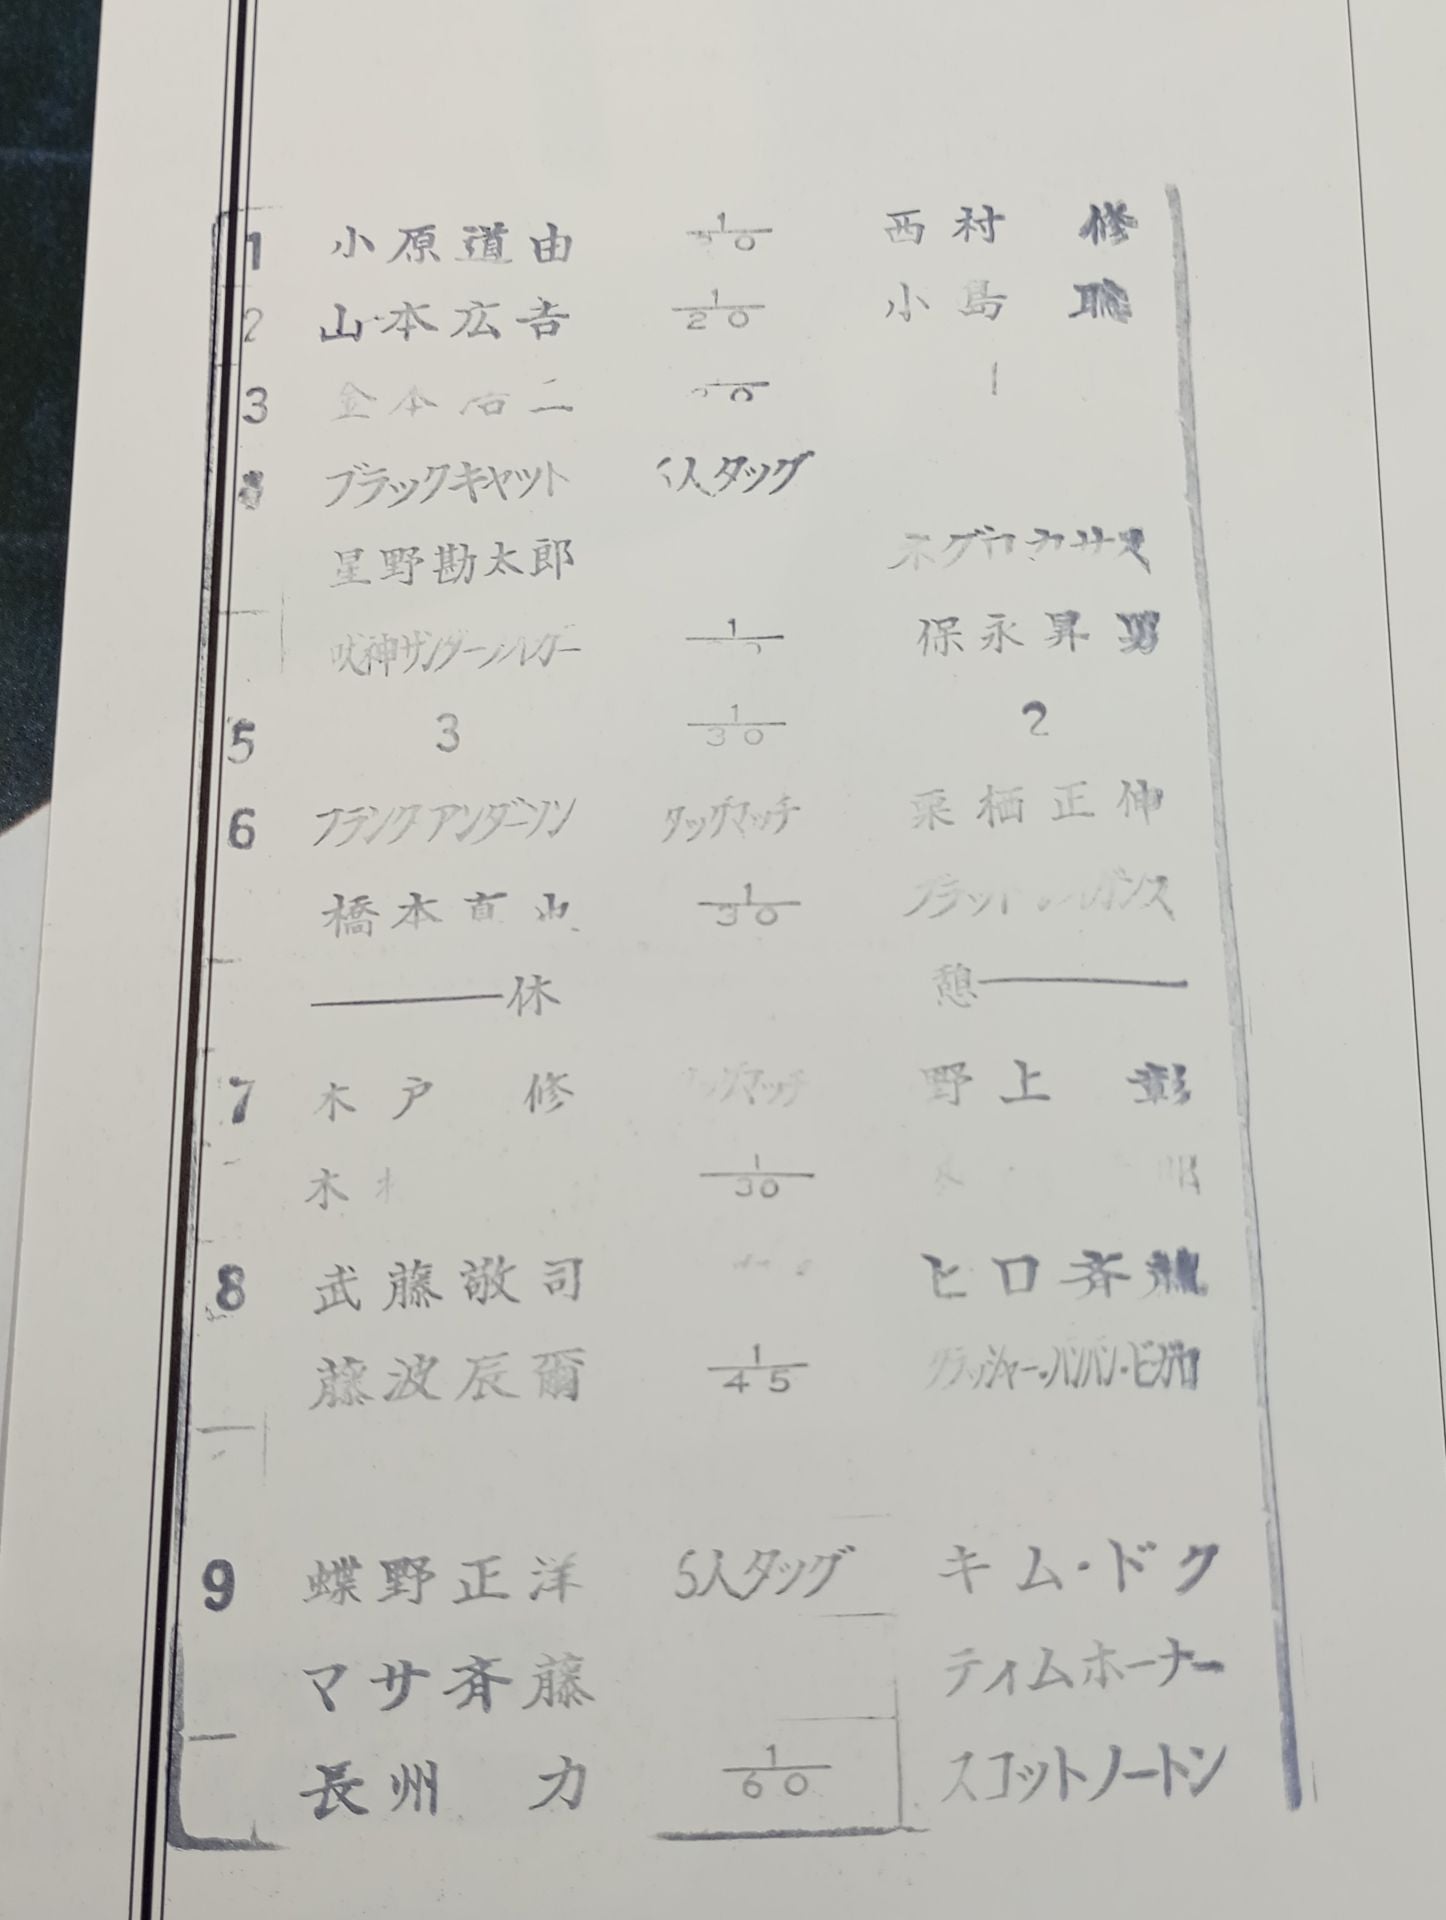 1 小原道由 1/30 西村 修
2 山本広吉 1/20 小島 聡
3 金本浩二
ブラックキャット 人タッグ
星野勘太郎 ネグロカサス
獣神サンダーライガー 保永昇男
5 3 1/30 2
6 フランクアンダーソン タッグマッチ 栗栖正伸
橋本真也 1/30 ブラッドレイガンス
休 憩
7 木戸 修 タッグマッチ 野上 彰
木 1/30
8 武藤敬司 ヒロ斉藤
藤波辰爾 1/45 クラッシャー・バンバン・ビガロ
9 蝶野正洋 6人タッグ キム・ドク
マサ斉藤 ティムホーナー
長州 力 1/60 スコットノートン